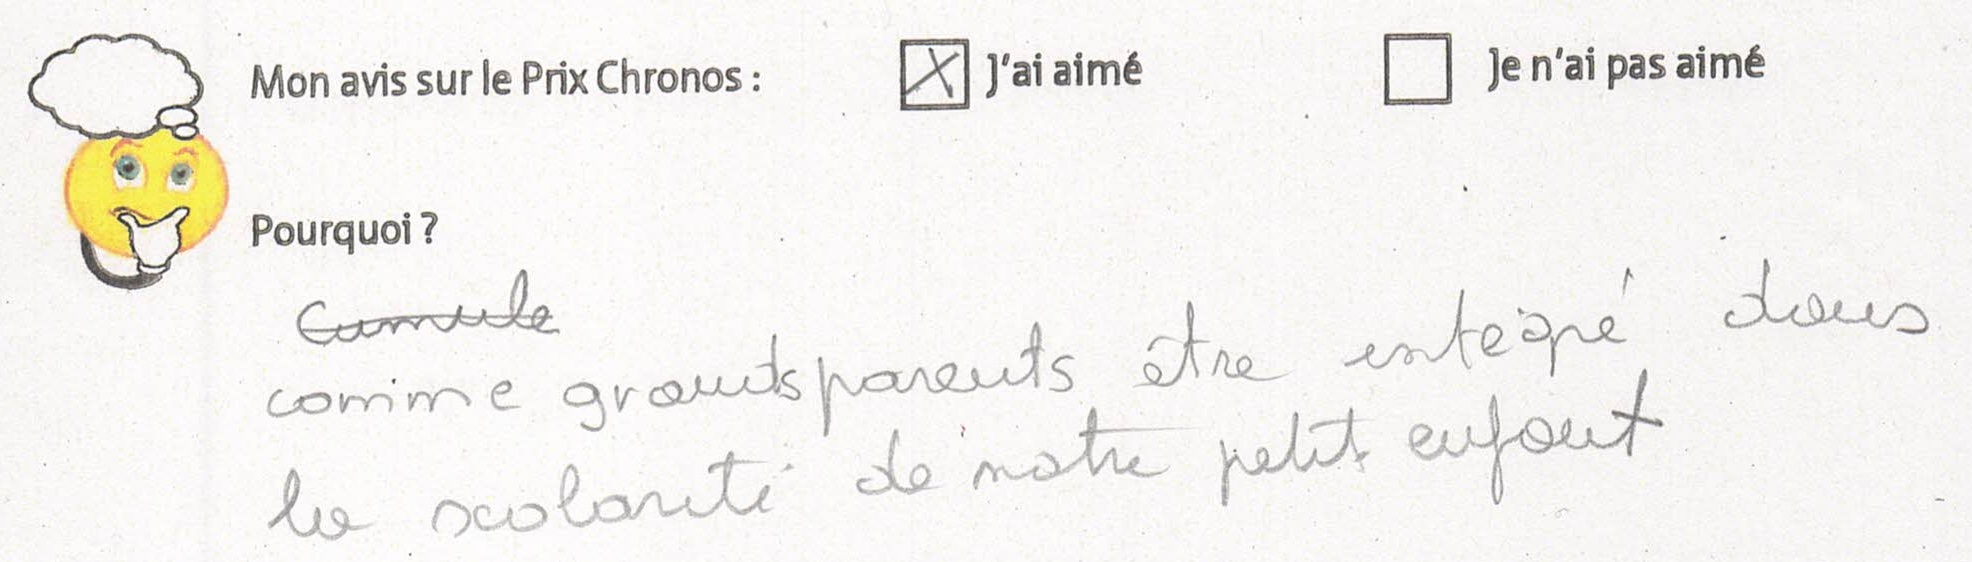 Mon avis sur le Prix Chronos : J'ai aimé Je n'ai pas aimé
Pourquoi ?
comme grandsparents être integré dans
la scolarité de notre petit enfant